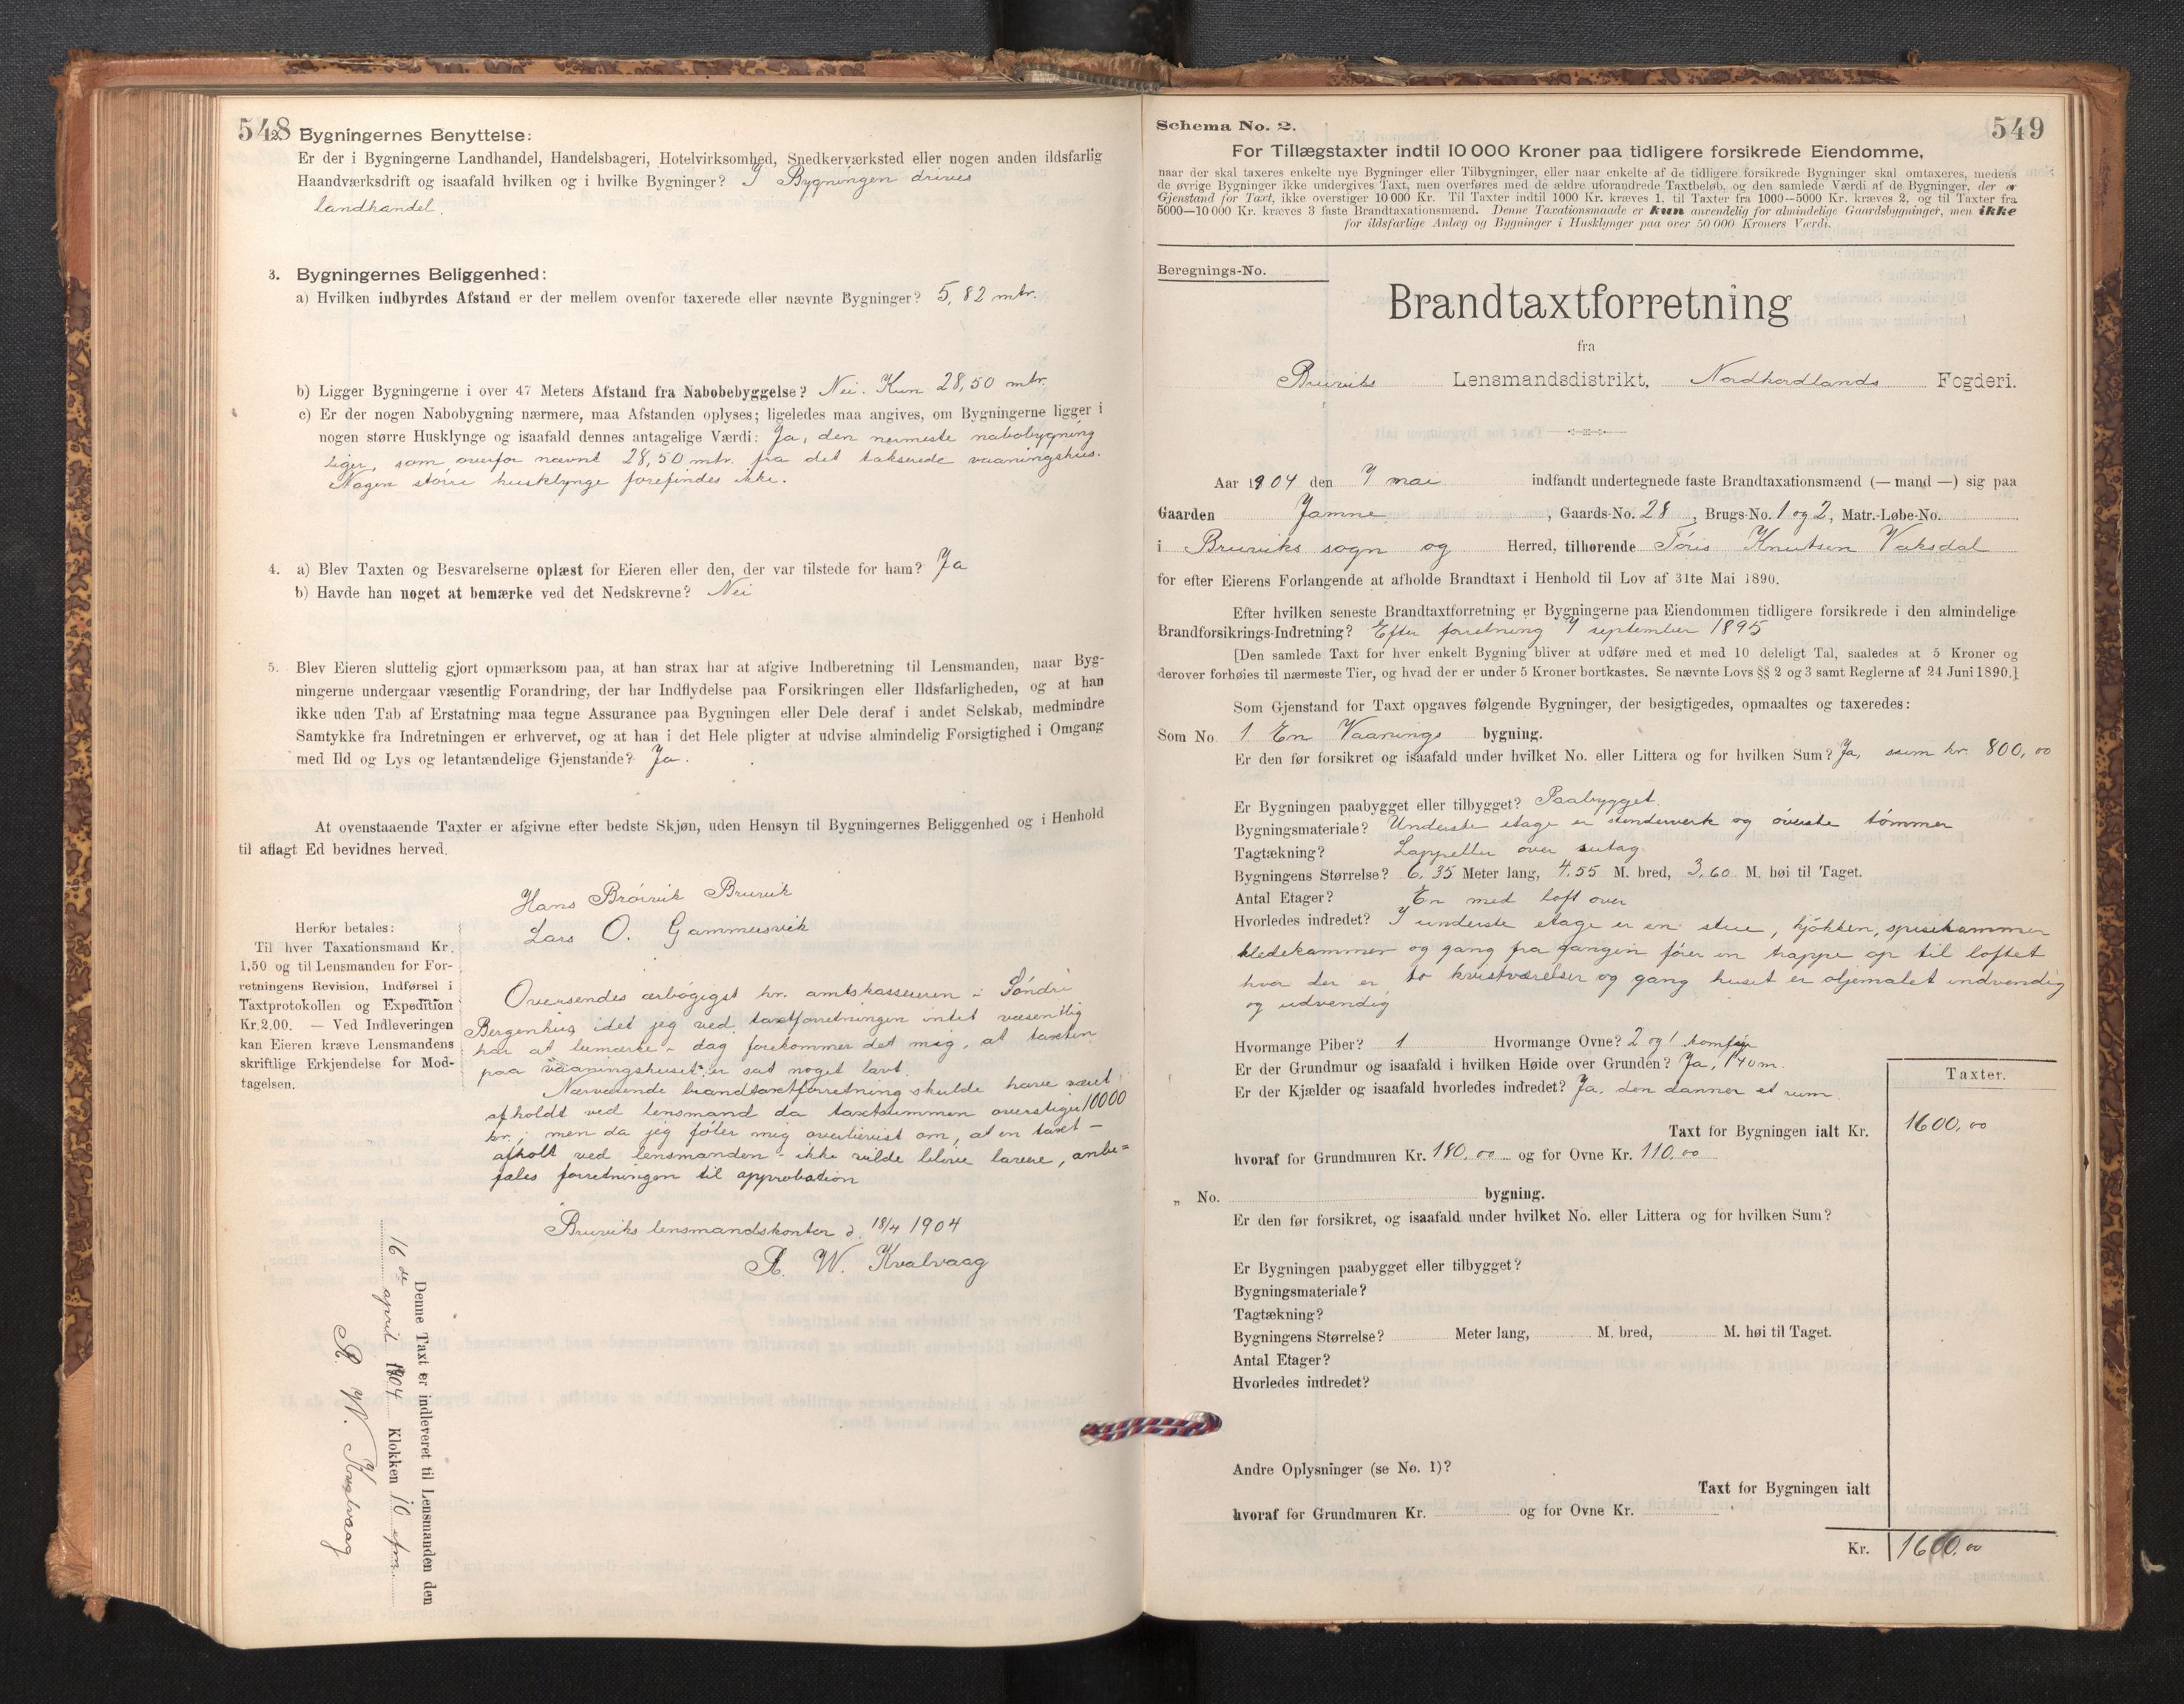 548
2. Bygningernes Benyttelse:
Er der i Bygningerne Landhandel, Handelsbageri, Hotelvirksomhed, Snedkerværksted eller nogen anden ildsfarlig
Haandværksdrift og isaafald hvilken og i hvilke Bygninger? I Bygningen drives
landhandel.
3. Bygningernes Beliggenhed:
a) Hvilken indbyrdes Afstand er der mellem ovenfor taxerede eller nævnte Bygninger? 5,82 mtr.
b) Ligger Bygningerne i over 47 Meters Afstand fra Nabobebyggelse? Nei. Kun 28,50 mtr.
c) Er der nogen Nabobygning nærmere, maa Afstanden oplyses; ligeledes maa angives, om Bygningerne ligger i
nogen større Husklynge og isaafald dennes antagelige Værdi: Ja, den nermeste nabobygning
liger, som overfor nævnt 28,50 mtr. fra det takserede vaaningshus.
Nogen större husklynge forefindes ikke.
4. a) Blev Taxten og Besvarelserne oplæst for Eieren eller den, der var tilstede for ham? Ja
b) Havde han noget at bemærke ved det Nedskrevne? Nei
5. Blev Eieren sluttelig gjort opmærksom paa, at han strax har at afgive Indberetning til Lensmanden, naar Byg-
ningerne undergaar væsentlig Forandring, der har Indflydelse paa Forsikringen eller Ildsfarligheden, og at han
ikke uden Tab af Erstatning maa tegne Assurance paa Bygningen eller Dele deraf i andet Selskab, medmindre
Samtykke fra Indretningen er erhvervet, og at han i det Hele pligter at udvise almindelig Forsigtighed i Omgang
med Ild og Lys og letantændelige Gjenstande? Ja.
At ovenstaaende Taxter er afgivne efter bedste Skjøn, uden Hensyn til Bygningernes Beliggenhed og i Henhold
til aflagt Ed bevidnes herved.
Hans Bröirvik Bruvik
Lars O. Gammersvik
Herfor betales:
Til hver Taxationsmand Kr.
1,50 og til Lensmanden for For-
retningens Revision, Indførsel i
Taxtprotokollen og Expedition
Kr. 2,00. — Ved Indleveringen
kan Eieren kræve Lensmandens
skriftlige Erkjendelse for Mod-
tagelsen.
Oversendes ærbögigst hr. amtskassereren i Söndre
Bergenhus, idet jeg ved taxtforretningen intet væsentlig
har at bemærke - dog forekommer det mig, at taxten
paa vaaningshuset er sat noget lavt.
Nærværende brandtaxtforretning skulde have været
afholdt ved lensmand da taxtsummen overstiger 10000
kr.; men da jeg föler mig overbevist om, at en taxt -
afholt ved lensmanden - ikke vilde blive lavere, anbe=
fales forretningen til approbation
Bruviks lensmandskontor d. 18/4 1904
A. W. Kvalvaag
Denne Taxt er indleveret til Lensmanden den
16de april 1904 Klokken 10 fm.
A. W. Kvalvaag
549
Schema No. 2.
For Tillægstaxter indtil 10 000 Kroner paa tidligere forsikrede Eiendomme,
naar der skal taxeres enkelte nye Bygninger eller Tilbygninger, eller naar enkelte af de tidligere forsikrede Bygninger skal omtaxeres, medens
de øvrige Bygninger ikke undergives Taxt, men overføres med de ældre uforandrede Taxtbeløb, og den samlede Værdi af de Bygninger, der er
Gjenstand for Taxt, ikke overstiger 10 000 Kr. Til Taxter indtil 1000 Kr. kræves 1, til Taxter fra 1000—5000 Kr. kræves 2, og til Taxter fra
5000—10 000 Kr. kræves 3 faste Brandtaxationsmænd. Denne Taxationsmaade er kun anvendelig for almindelige Gaardsbygninger, men ikke
for ildsfarlige Anlæg og Bygninger i Husklynger paa over 50 000 Kroners Værdi.
Beregnings-No.
Brandtaxtforretning
fra
Bruviks Lensmandsdistrikt, Nordhordlands Fogderi.
Aar 1904 den 7 mai indfandt undertegnede faste Brandtaxationsmænd (— mand —) sig paa
Gaarden Jamne, Gaards-No. 28, Brugs-No. 1 og 2, Matr.-Løbe-No.
i Bruviks sogn og Herred, tilhørende Töris Knutsen Vaksdal
for efter Eierens Forlangende at afholde Brandtaxt i Henhold til Lov af 31te Mai 1890.
Efter hvilken seneste Brandtaxtforretning er Bygningerne paa Eiendommen tidligere forsikrede i den almindelige
Brandforsikrings-Indretning? Efter forretning 7 september 1895
[Den samlede Taxt for hver enkelt Bygning bliver at udføre med et med 10 deleligt Tal, saaledes at 5 Kroner og
derover forhøies til nærmeste Tier, og hvad der er under 5 Kroner bortkastes. Se nævnte Lovs §§ 2 og 3 samt Reglerne af 24 Juni 1890.]
Som Gjenstand for Taxt opgaves følgende Bygninger, der besigtigedes, opmaaltes og taxeredes:
Som No. 1 En Vaanings bygning.
Er den før forsikret og isaafald under hvilket No. eller Littera og for hvilken Sum? Ja, sum kr. 800,00
Er Bygningen paabygget eller tilbygget? Paabygget.
Bygningsmateriale? Underste etage er stenderverk og överste tömmer
Tagtækning? Lappeller over sutag
Bygningens Størrelse? 6,35 Meter lang, 4,55 M. bred, 3,60 M. høi til Taget.
Antal Etager? En med loft over
Hvorledes indredet? I underste etage er en stue, kjökken, spisekammer
kledekammer og gang fra gangen förer en trappe op til loftet
hvor der er to kvistværelser og gang huset er oljemalet indvendig
og udvendig
Hvormange Piber? 1 Hvormange Ovne? 2 og 1 komfyr
Er der Grundmur og isaafald i hvilken Høide over Grunden? Ja, 1,40 m.
Er der Kjælder og isaafald hvorledes indredet? Ja, den danner et rum.
Taxter.
Taxt for Bygningen ialt Kr. 1600,00
hvoraf for Grundmuren Kr. 180,00 og for Ovne Kr. 110,00
„ No. bygning.
Er den før forsikret, og isaafald under hvilket No. eller Littera og for hvilken Sum?
Er Bygningen paabygget eller tilbygget?
Bygningsmateriale?
Tagtækning?
Bygningens Størrelse? Meter lang, M. bred, M. høi til Taget.
Antal Etager?
Hvorledes indredet?
Andre Oplysninger (se No. 1)?
Taxt for Bygningen ialt
hvoraf for Grundmuren Kr. og for Ovne Kr.
Kr. 1600,00